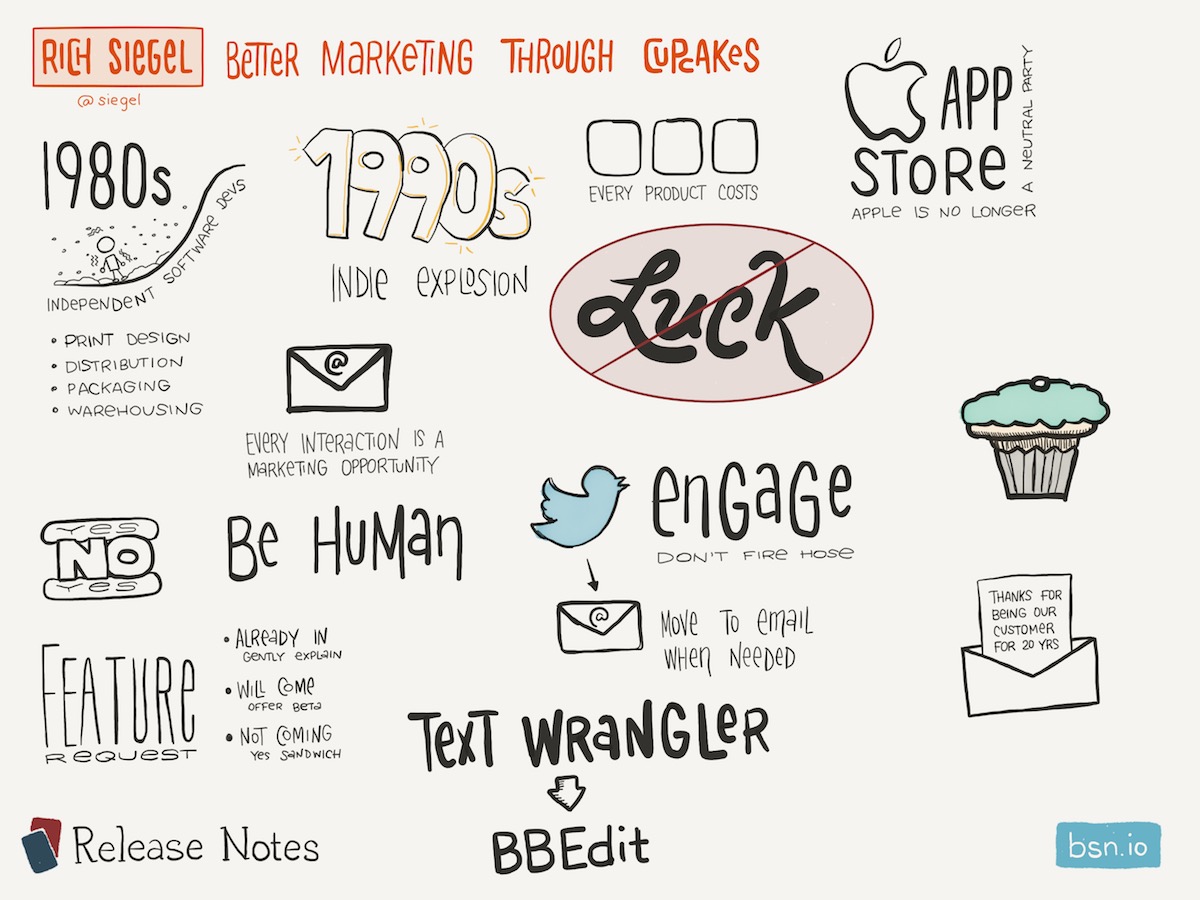 RICH SIEGEL
BETTER MARKETING THROUGH CUPCAKES
@siegel
1980s
INDEPENDENT SOFTWARE DEVS
• PRINT DESIGN
• DISTRIBUTION
• PACKAGING
• WAREHOUSING
1990s
INDIE EXPLOSION
EVERY PRODUCT COSTS
APP
STORE
APPLE IS NO LONGER
A NEUTRAL PARTY
Luck
@
EVERY INTERACTION IS A
MARKETING OPPORTUNITY
Yes
NO
Yes
Be HUMan
enGaGe
DON'T FIRE HOSE
@
MOVE TO email
WHEN NEEDED
THANKS FOR
BEING OUR
CUSTOMER
FOR 20 YRS
FEATURE
REQUEST
• ALREADY IN
GENTLY EXPLAIN
• WILL COME
OFFER BETA
• NOT COMING
YES SANDWICH
TexT WRaNGLeR
BBEdit
Release Notes
bsn.io